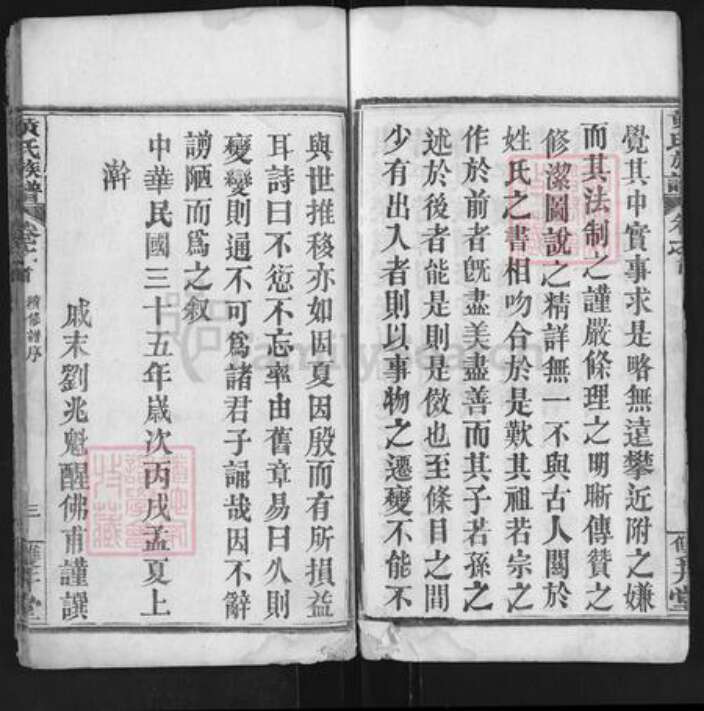 覺其中實事求是略無遠攀近附之嫌
而其法制之謹嚴條理之明晰傳贊之
修潔圖說之精詳無一不與古人關於
姓氏之書相吻合於是歎其祖若宗之
作於前者旣盡美盡善而其子若孫之
述於後者能是則是傚也至條目之間
少有出入者則以事物之遷變不能不
與世推移亦如因夏因殷而有所損益
耳詩曰不愆不忘率由舊章易曰久則
變變則通不可爲諸君子誦哉因不辭
謭陋而爲之叙
中華民國三十五年歲次丙戌孟夏上
澣
戚末劉兆魁醒佛甫謹譔
黃氏族譜
卷之首
續修譜序
三
雙井堂
黃氏族譜
卷之首
雙井堂
FamilySearch